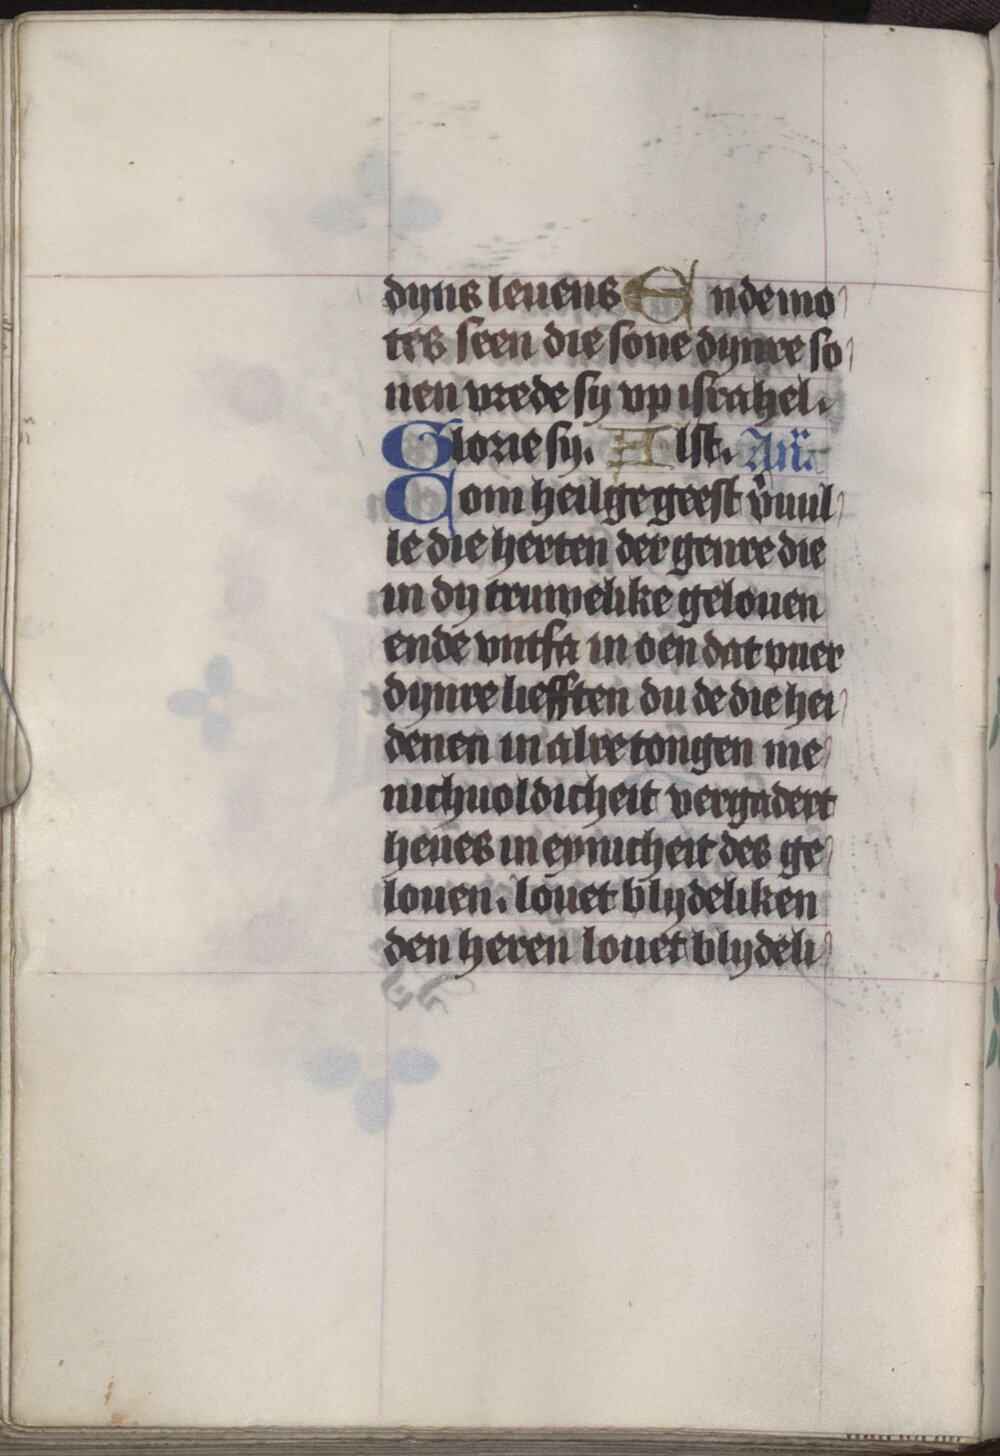 dyns leuens Ende mo
tes seen die sone dynre so
nen vrede sy vp israhel.
Glorie sy. Alst. An̄
Com heilge geest v̄uul
le die herten der genre die
in dy truwelike gelouen
ende vntfa in oen dat vuer
dynre liefften du de die hei
denen in alre tongen me
nichuoldicheit vergadert
heues in eynicheit des ge
louen. louet blydeliken
den heren louet blydeli